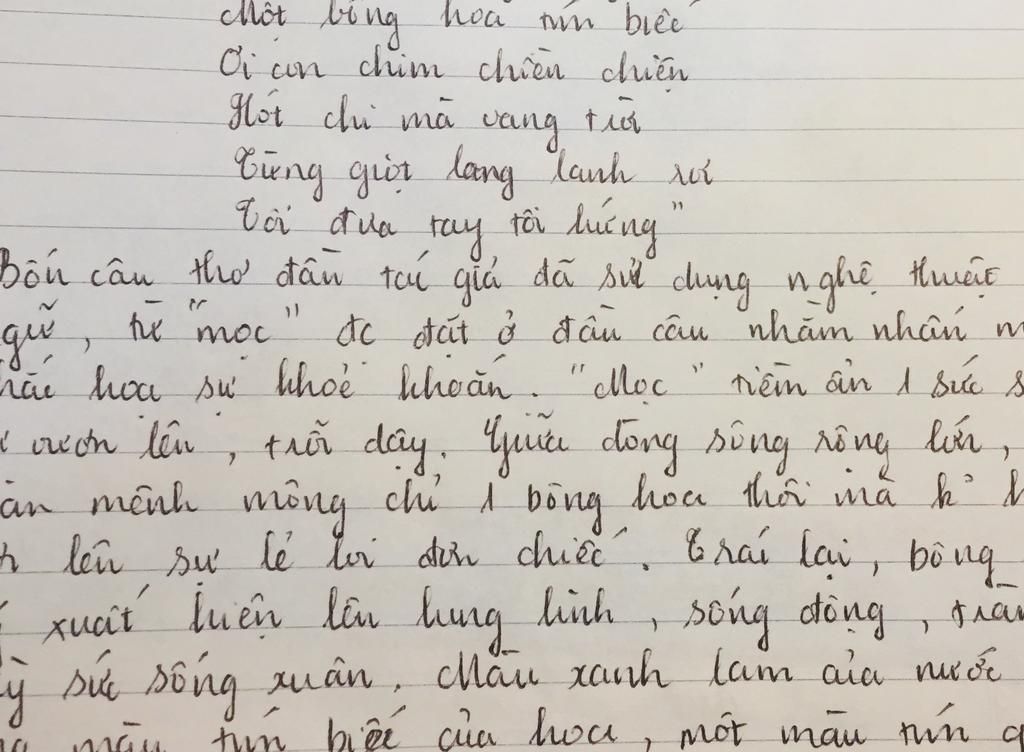 Một bông hoa tím biếc
Ơi con chim chiền chiện
Hót chi mà vang trời
Từng giọt long lanh rơi
Tôi đưa tay tôi hứng"
Bốn câu thơ đầu tác giả đã sử dụng nghệ thuật
gữ, từ "mọc" đc đặt ở đầu câu nhằm nhấn m
hắc hoạ sự khoẻ khoắn. "Mọc" tiềm ẩn 1 sức s
vươn lên, trỗi dậy. Giữa dòng sông rộng lớn,
ân mênh mông chỉ 1 bông hoa thôi mà k°
lên sự lẻ loi đơn chiếc. Trái lại, bông
xuất hiện lên lung linh, sống động, tràn
ý sức sống xuân. Màu xanh lam của nước
màu tím biếc của hoa, một màu tím